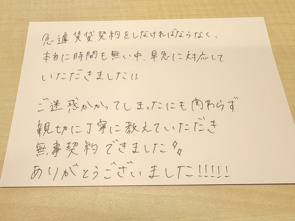 急遽賃貸契約をしなければならなく、
本当に時間も無い中、早急に対応して
いただきました!!
ご迷惑かかってしまったにも関わらず
親切に丁寧に教えていただき
無事契約できました
ありがとうございました!!!!!